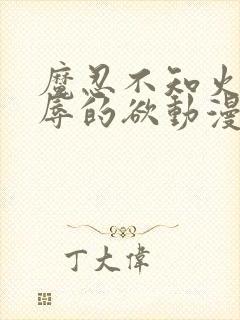 魔忍不知火
辱的欲動漫
丁大偉